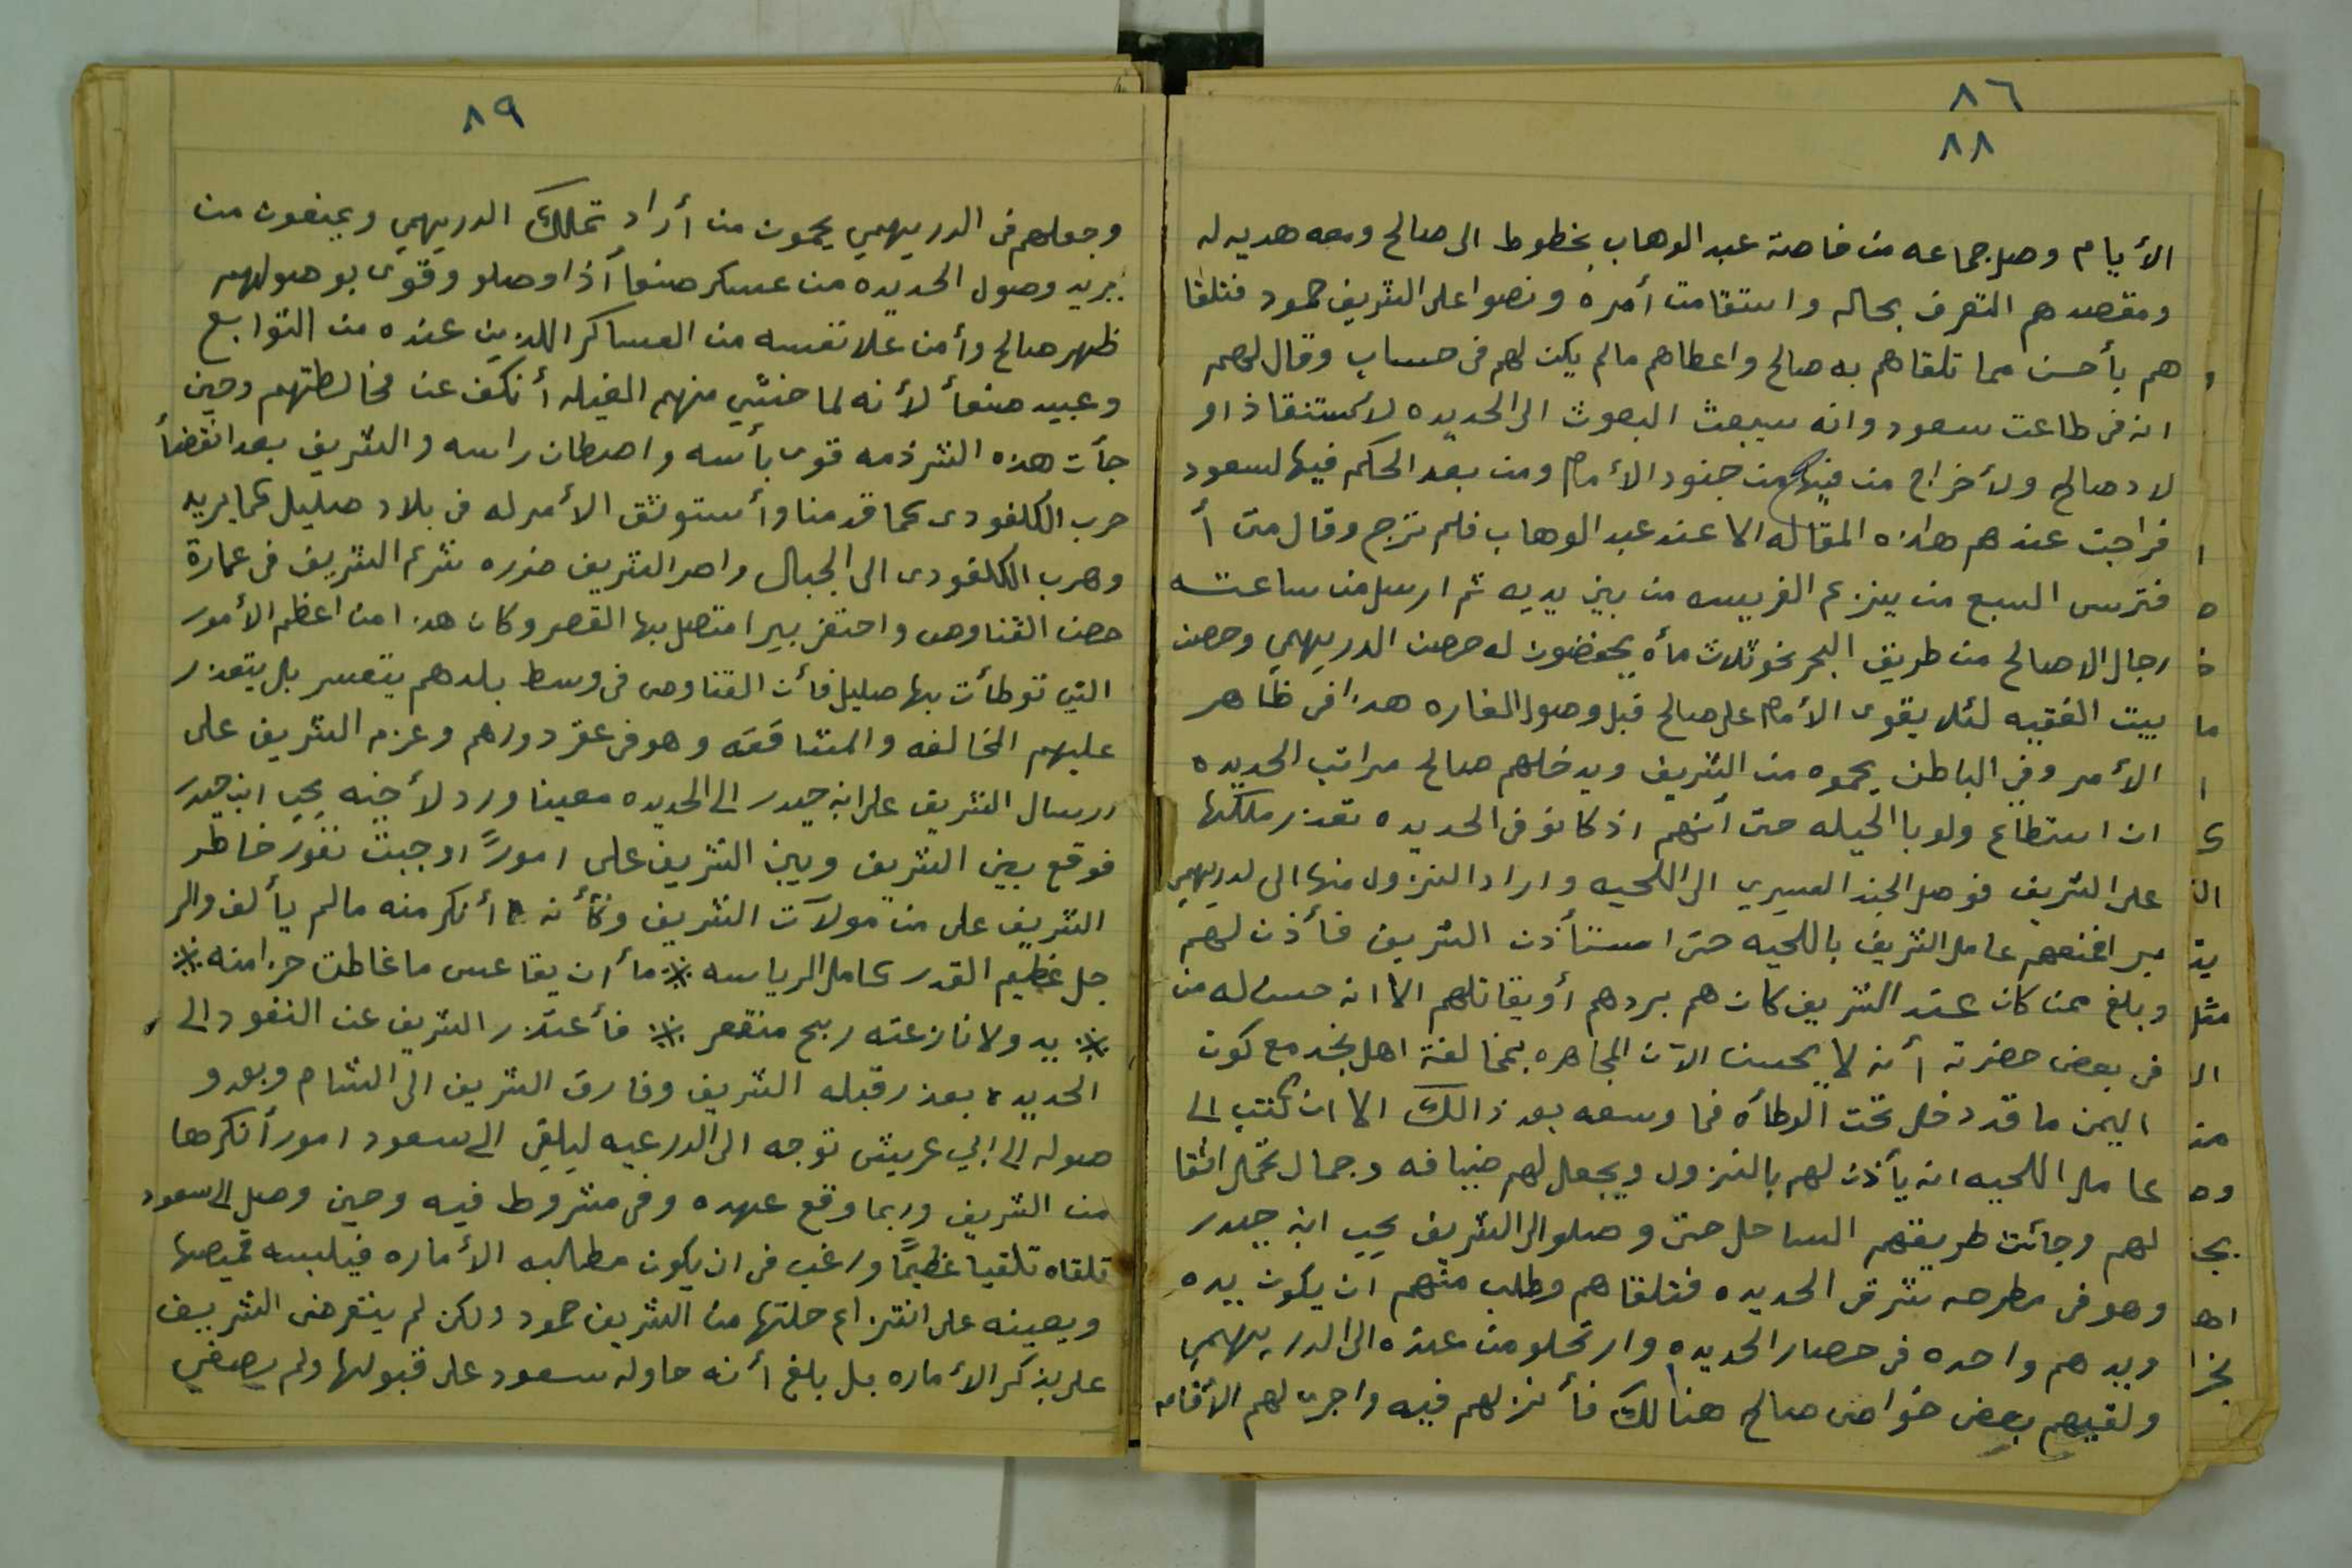 ٨٦
٨٨
الأيام وصل جماعه من خاصة عبد الوهاب بخطوط الى صالح ومعه هديه له
ومقصدهم التعرف بحاله واستقامت أمره ونصوا على الشريف حمود فتلقا
هم بأحسن مما تلقاهم به صالح واعطاهم مالم يكن لهم في حساب وقال لهم
انه في طاعت سعود وانه سيبعث البعوث الى الحديده لاستنقاذ او
لاد صالح ولأخراج من فيها من جنود الأمام ومن بعد الحكم فيها لسعود
فراجت عندهم هاذه المقاله الا عند عبد الوهاب فلم ترج وقال متى أ
فترس السبع من ينزع الفريسه من بين يديه ثم ارسل من ساعته
رجال الا صالح من طريق البحر نحو ثلاث مأه يحفضون له حصن الدريهمي وحصن
بيت الفقيه لئلا يقوى الأمام على صالح قبل وصول الغاره هذا في ظاهر
الأمر وفي الباطن يحموه من الشريف ويدخلهم صالح مراتب الحديده
ان استطاع ولو با الحيله حتى أنهم اذ كانو في الحديده تعذر ملكها
على الشريف فوصل الجند العسيري الى اللحيه وارادا النزول منها الى لدريهمي
عامل الشريف باللحيه حتى استأذن الشريف فأذن لهم
وبلغ ممن كان عند الشريف كان هم بردهم أو يقاتلهم الا انه حسن له من
في بعض حضرته أنه لا يحسن الآن المجاهره بمخالفة اهل نجد مع كون
اليمن ما قد دخل تحت الوطأه فما وسعه بعد ذالك الا ان كتب الى
عامل اللحيه انه يأذن لهم بالنزول ويجعل لهم ضيافه وجمال تحمل اثقا
لهم وجأت طريقهم الساحل حتى وصلو الى الشريف يحي ابن حيدر
وهو في مطرحه شرقي الحديده فتلقاهم وطلب منهم ان يكون يده
ويدهم واحده في حصار الحديده وارتحلو من عنده الى الدريهمي
ولقيهم بعض خواص صالح هنالك فأنزلهم فيه واجرى لهم الأقامه
٨٩
وجعلهم في الدريهمي يحمون من أراد تملك الدريهمي ويمنعون من
يريد وصول الحديده من عسكر صنعأ أذا وصلو وقوى بوصولهم
ظهر صالح وأمن علا نفسه من العساكر اللذين عنده من التوابع
وعبيد صنعأ لأنه لما خشي منهم الغيله أنكف عن مخالطتهم وحين
جأت هذه الشرذمه قوى بأسه واصطان راسه والشريف بعد انقضأ
حرب الكلفودى كما قدمنا وأستوثق الأمر له في بلاد صليل كما يريد
وهرب الكلفودى الى الجبال وامر الشريف ضرره شرع الشريف في عمارة
حصن القناوص واحتفر بيرا متصل بها القصر وكان هذا من أعظم الأمور
التي توطأت بها صليل فأن القناوص في وسط بلدهم يتعسر بل يتعذر
عليهم المخالفه والمشاققه وهو في عقر دورهم وعزم الشريف على
ارسال الشريف على ابن حيدر الى الحديده معينا ورد لأخيه يحي ابن حيدر
فوقع بين الشريف وبين الشريف على اموراً اوجبت نفور خاطر
الشريف على من مولآت الشريف وكأنه أنكر منه مالم يألف والر
جل عظيم القدر كامل الرياسه ※ ما أن يقاعس ما غاطت حزامنه ※
※ يد ولا نازعته ريح منقعر ※ فأعتذر الشريف عن النفود الى
الحديده بعذر قبله الشريف وفارق الشريف الى الشام وبعد و
صوله الى ابي عريش توجه الى الدرعيه ليلقي الى سعود امورا أنكرها
من الشريف وربما وقع عهده وفي مشروط فيه وحين وصل الى سعود
تلقاه تلقيا عظيماً ورغب في ان يكون مطالبه الأماره فيلبسه قميصها
ويعينه على انتزاع حلتها من الشريف حمود ولكن لم يتعرض الشريف
على بذكر الأماره بل بلغ أنه حاوله سعود على قبولها ولم يصغي